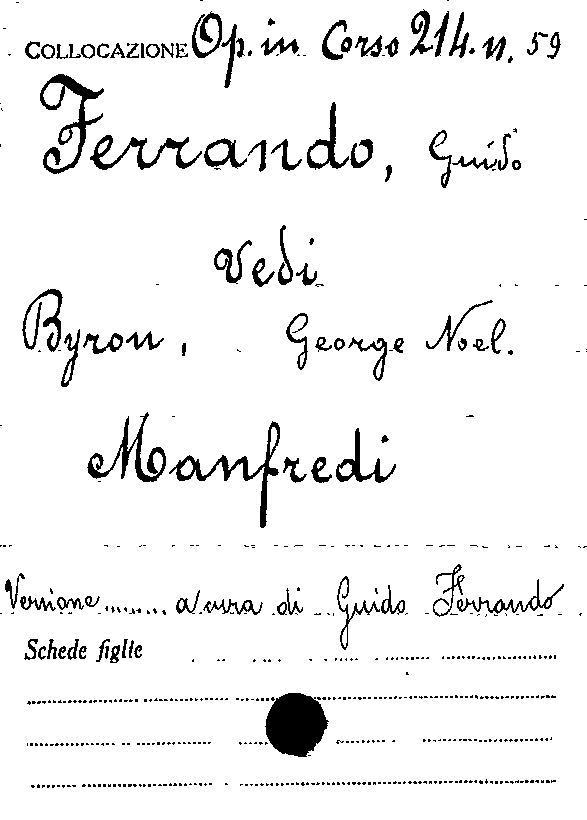 COLLOCAZIONE Op. in Corso 214. n. 59
Ferrando, Guido
Vedi
Byron, George Noel.
Manfredi
Versione........ a cura di Guido Ferrando
Schede figlie